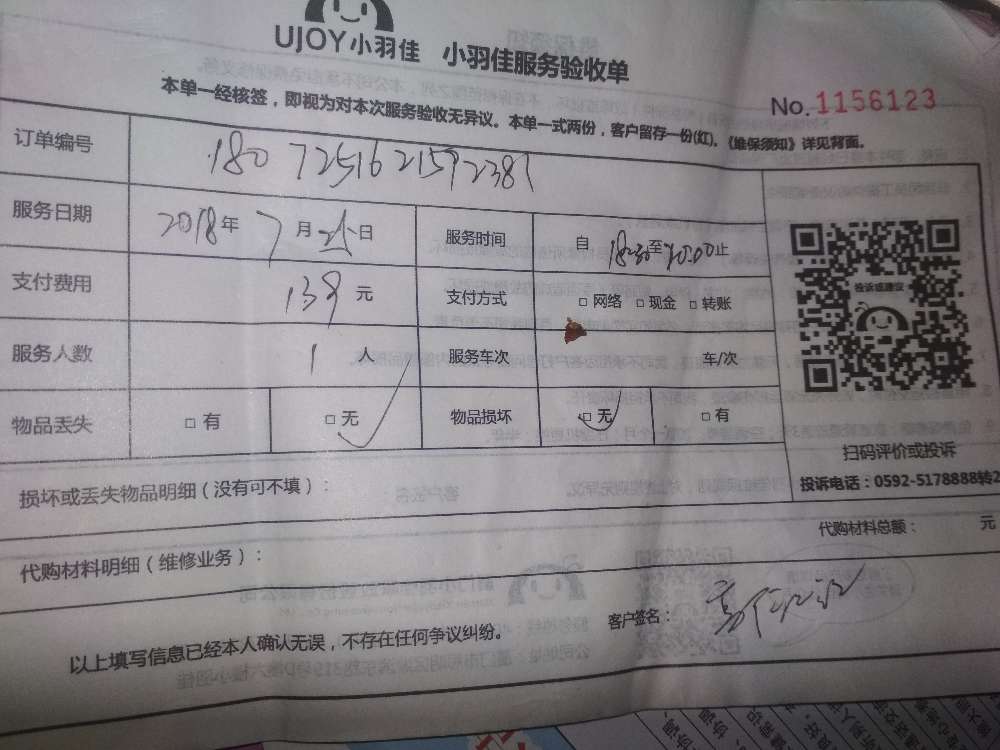 UJOY小羽佳 小羽佳服务验收单
本单一经核签，即视为对本次服务验收无异议。本单一式两份，客户留存一份(红)。《维保须知》详见背面。
No.1156123
订单编号 1807251621592381
服务日期 2018年7月25日 服务时间 自18:30至20:00止
支付费用 139元 支付方式 □网络 □现金 □转账
服务人数 1人 服务车次 车/次
物品丢失 □有 □无 物品损坏 □无 □有
投诉或建议
扫码评价或投诉
投诉电话：0592-5178888转2
损坏或丢失物品明细（没有可不填）：
代购材料总额： 元
代购材料明细（维修业务）：
客户签名：
以上填写信息已经本人确认无误，不存在任何争议纠纷。